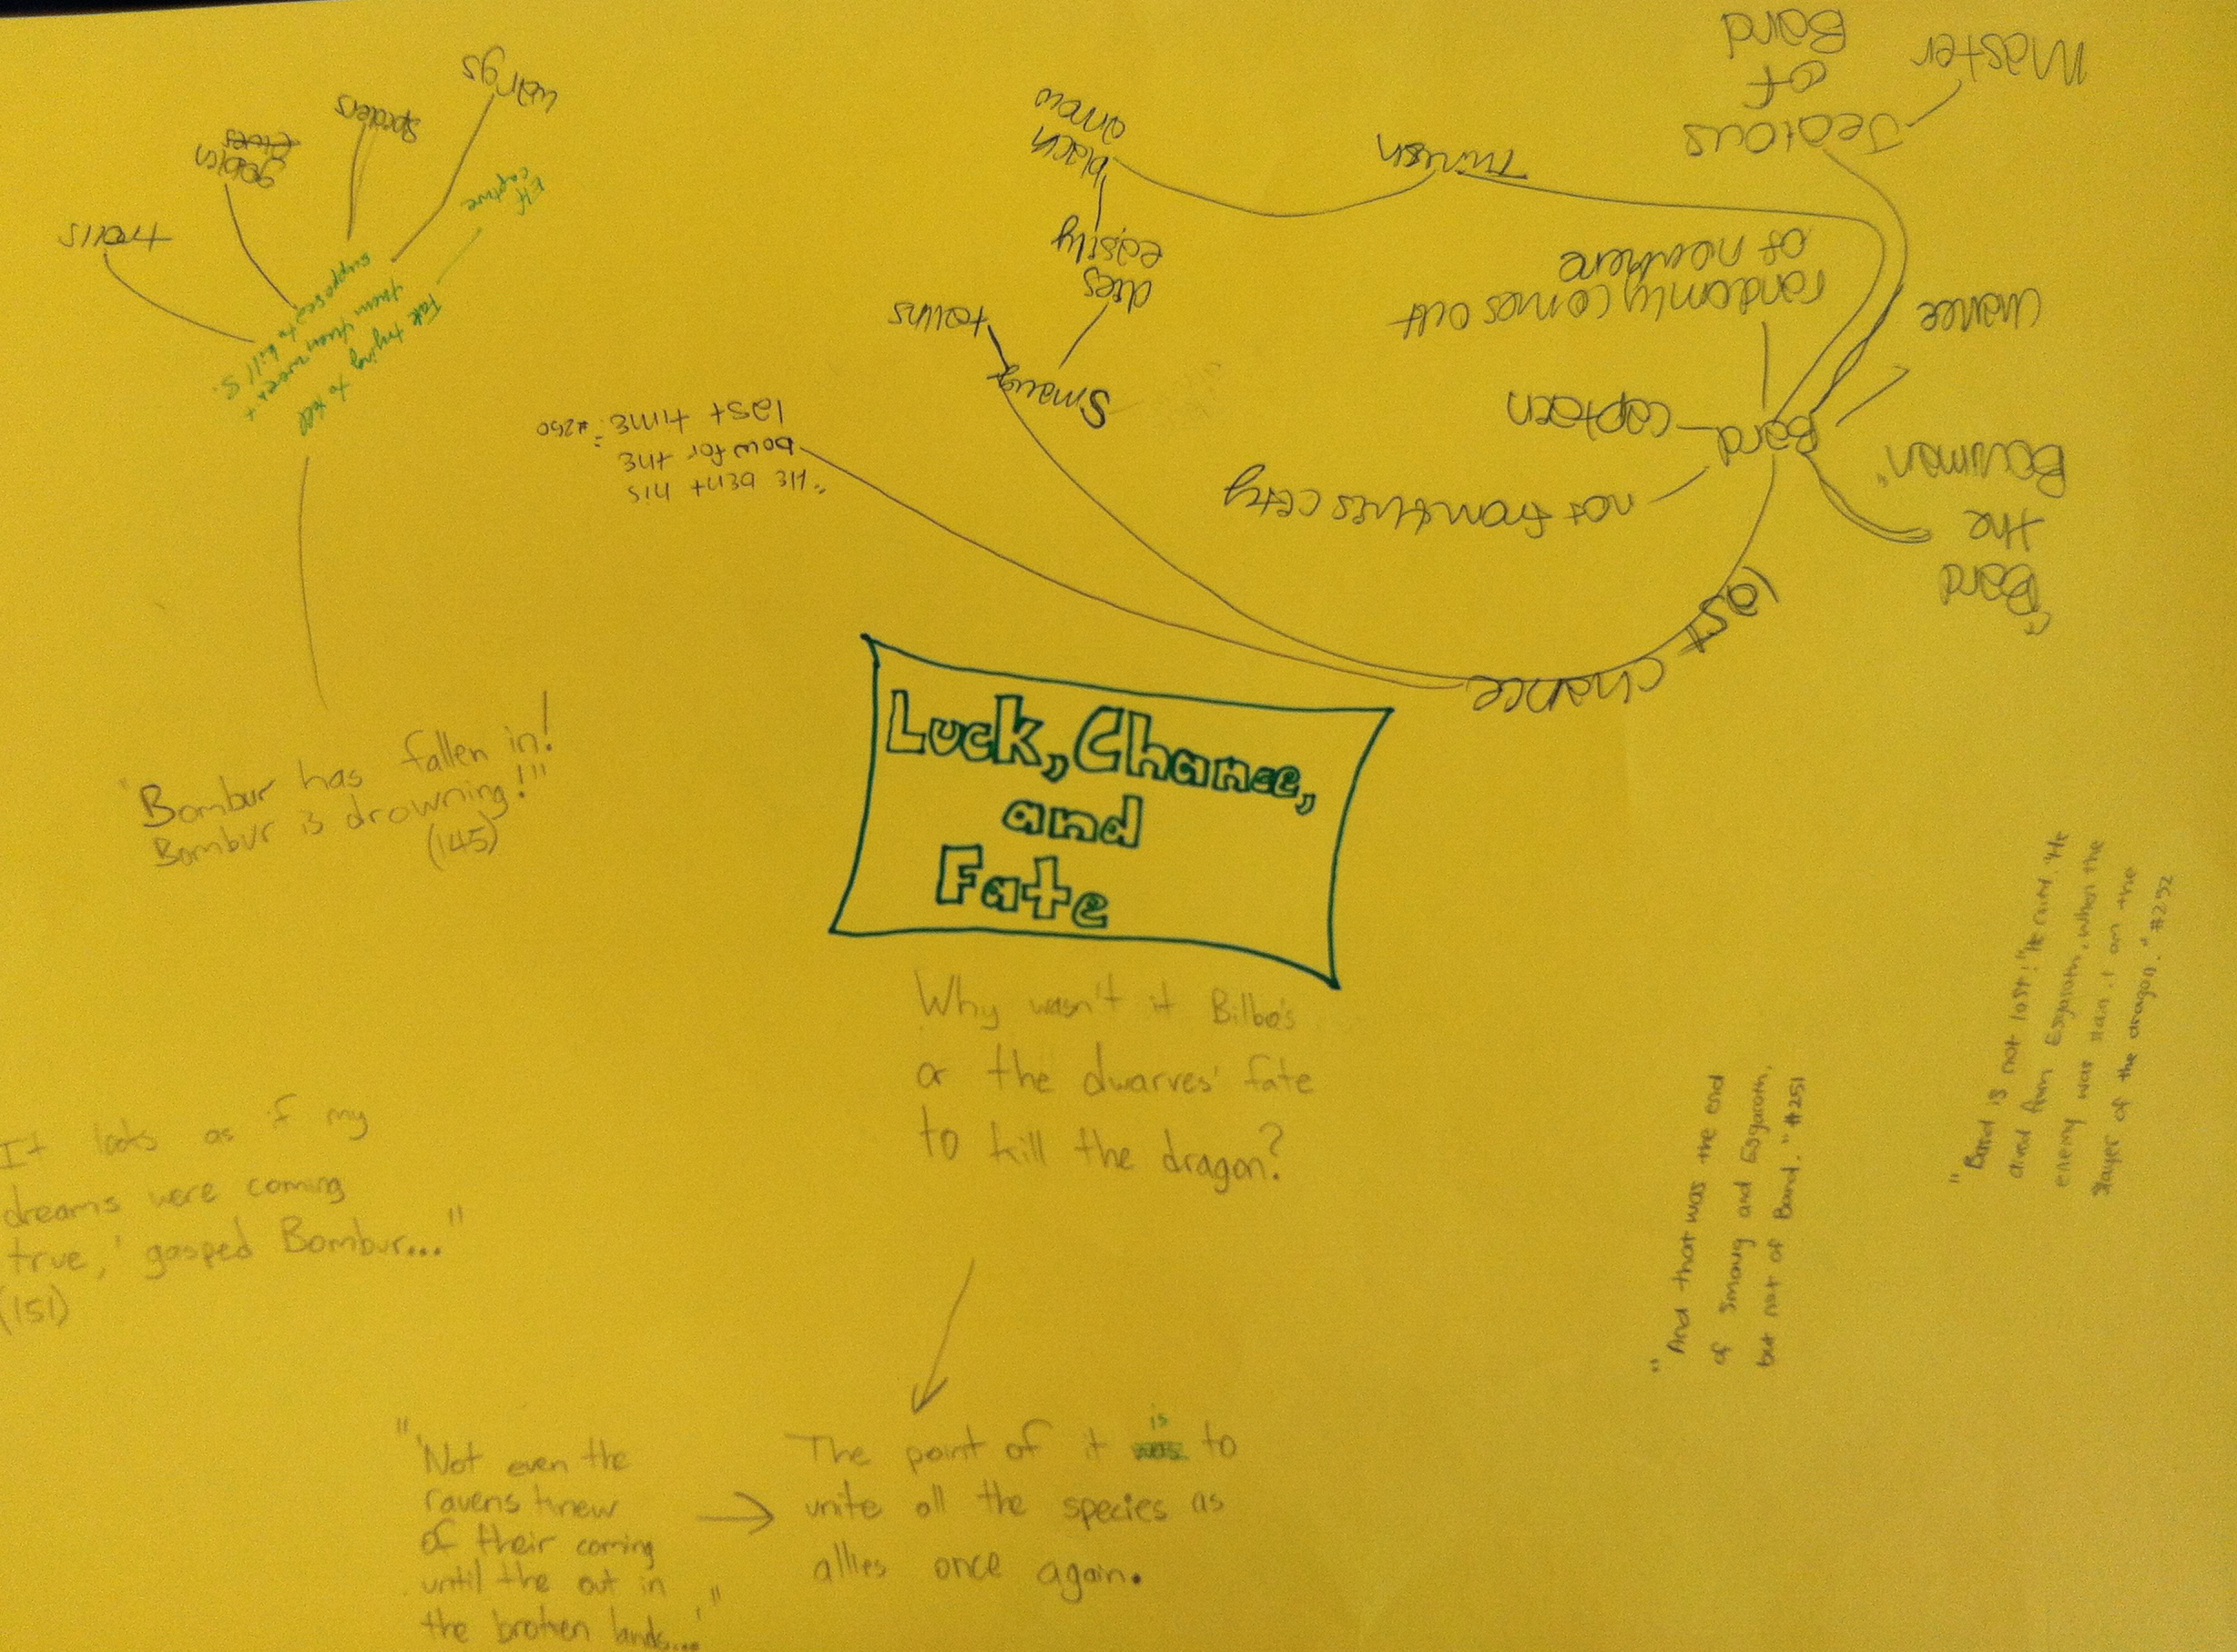 Luck, Chance,
and
Fate
Why wasn't it Bilbo's
or the dwarves' fate
to kill the dragon?
The point of it was is to
unite all the species as
allies once again.
"'Not even the
ravens knew
of their coming
until the out in
the broken lands...'"
"Bombur has fallen in!
Bombur is drowning!"
(145)
It looks as if my
dreams were coming
true,' gasped Bombur..."
(151)
Fate trying to kill
them when weren't
supposed to kill S.
Elf
capture
wargs
spiders
goblin
trolls
last
chance
"He bent his
bow for the
last time" #250
Smaug
returns
dies
easily
black
arrow
Bard
not from this city
captain
randomly comes out
of nowhere
"Bard
the
Bowman"
chance
Jealous
of
Bard
Master
"And that was the end
of Smaug and Esgaroth,
but not of Bard." #251
"Bard is not lost!" He said. "He
dived from Esgaroth, when the
enemy was slain. I am the
slayer of the dragon." #252